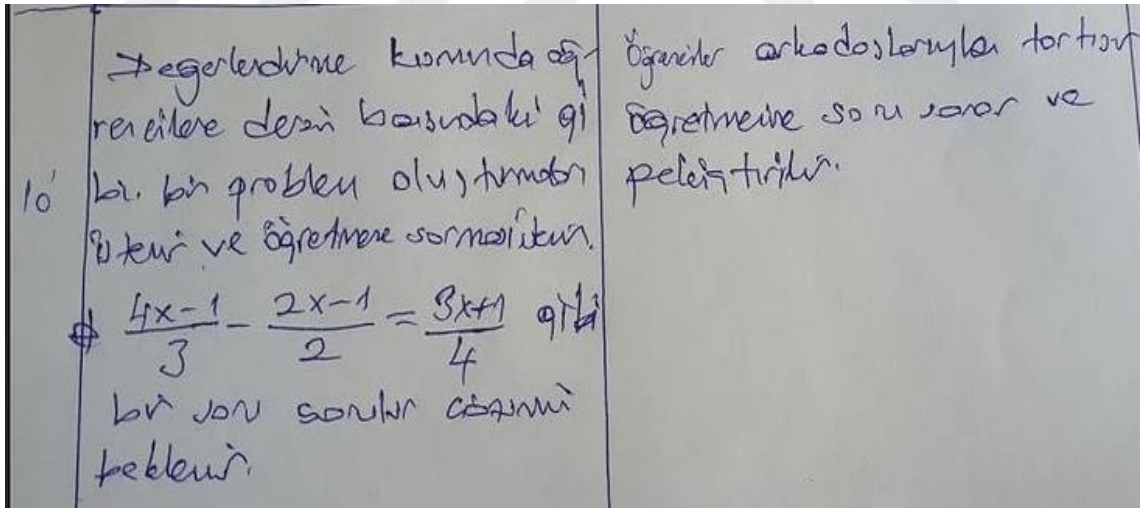 10'
Değerlendirme kısmında öğ-
rencilere dersin başındaki gi
bi. bir problem oluşturmaları
istenir ve öğretmene sormaları istenir.
4x-1/3 - 2x-1/2 = 3x+1/4 gibi
bir soru sorulur çözümü
beklenir.
Öğrenciler arkadaşlarıyla tartışır
öğretmenine soru sorar ve
pekiştirilir.